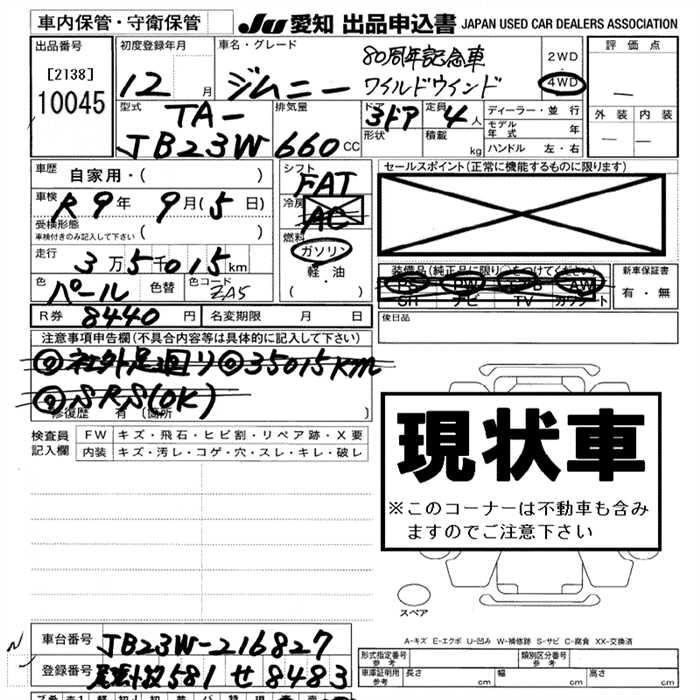 車内保管・守衛保管
JU 愛知 出品申込書 JAPAN USED CAR DEALERS ASSOCIATION
出品番号
[2138]
10045
初度登録年月
12 月
車名・グレード
80周年記念車
ジムニー ワイルドウインド
2WD
・
4WD
評価点
—
外装 内装
— —
型式
TA-
JB23W
排気量
660 CC
ドア
3ドア
形状
定員
4 人
積載 kg
ディーラー・並行
モデル年式 年
ハンドル 左・右
車歴
自家用・( )
車検
R9年 9月(5日)
受検形態
車検付きのみ記入して下さい ( )
走行
3万5千015km
色
パール
色替
色コード
ZA5
R券 8440 円
名変期限 月 日
シフト
FAT
冷房
AC
燃料
ガソリン
軽・油
( )
セールスポイント(正常に機能するものに限ります)
装備品(純正品に限り○をつけてください)
PS PW AW
SH ナビ TV カワシート
新車保証書
有・無
後日品
注意事項申告欄(不具合内容等は具体的に記入して下さい)
社外足廻り 35015km
SRS(OK)
修復歴 有(箇所 )
検査員記入欄
FW キズ・飛石・ヒビ割・リペア跡・X要
内装 キズ・汚レ・コゲ・穴・スレ・キレ・破レ
現状車
※このコーナーは不動車も含み
ますのでご注意下さい
スペア
A-キズ E-エクボ U-凹み W-補修跡 S-サビ C-腐食 XX-交換済
車台番号 JB23W-216827
登録番号 581 せ 8483
形式指定番号
参考
類別区分番号
参考
車庫証明用
参考
長さ cm 幅 cm 高さ cm